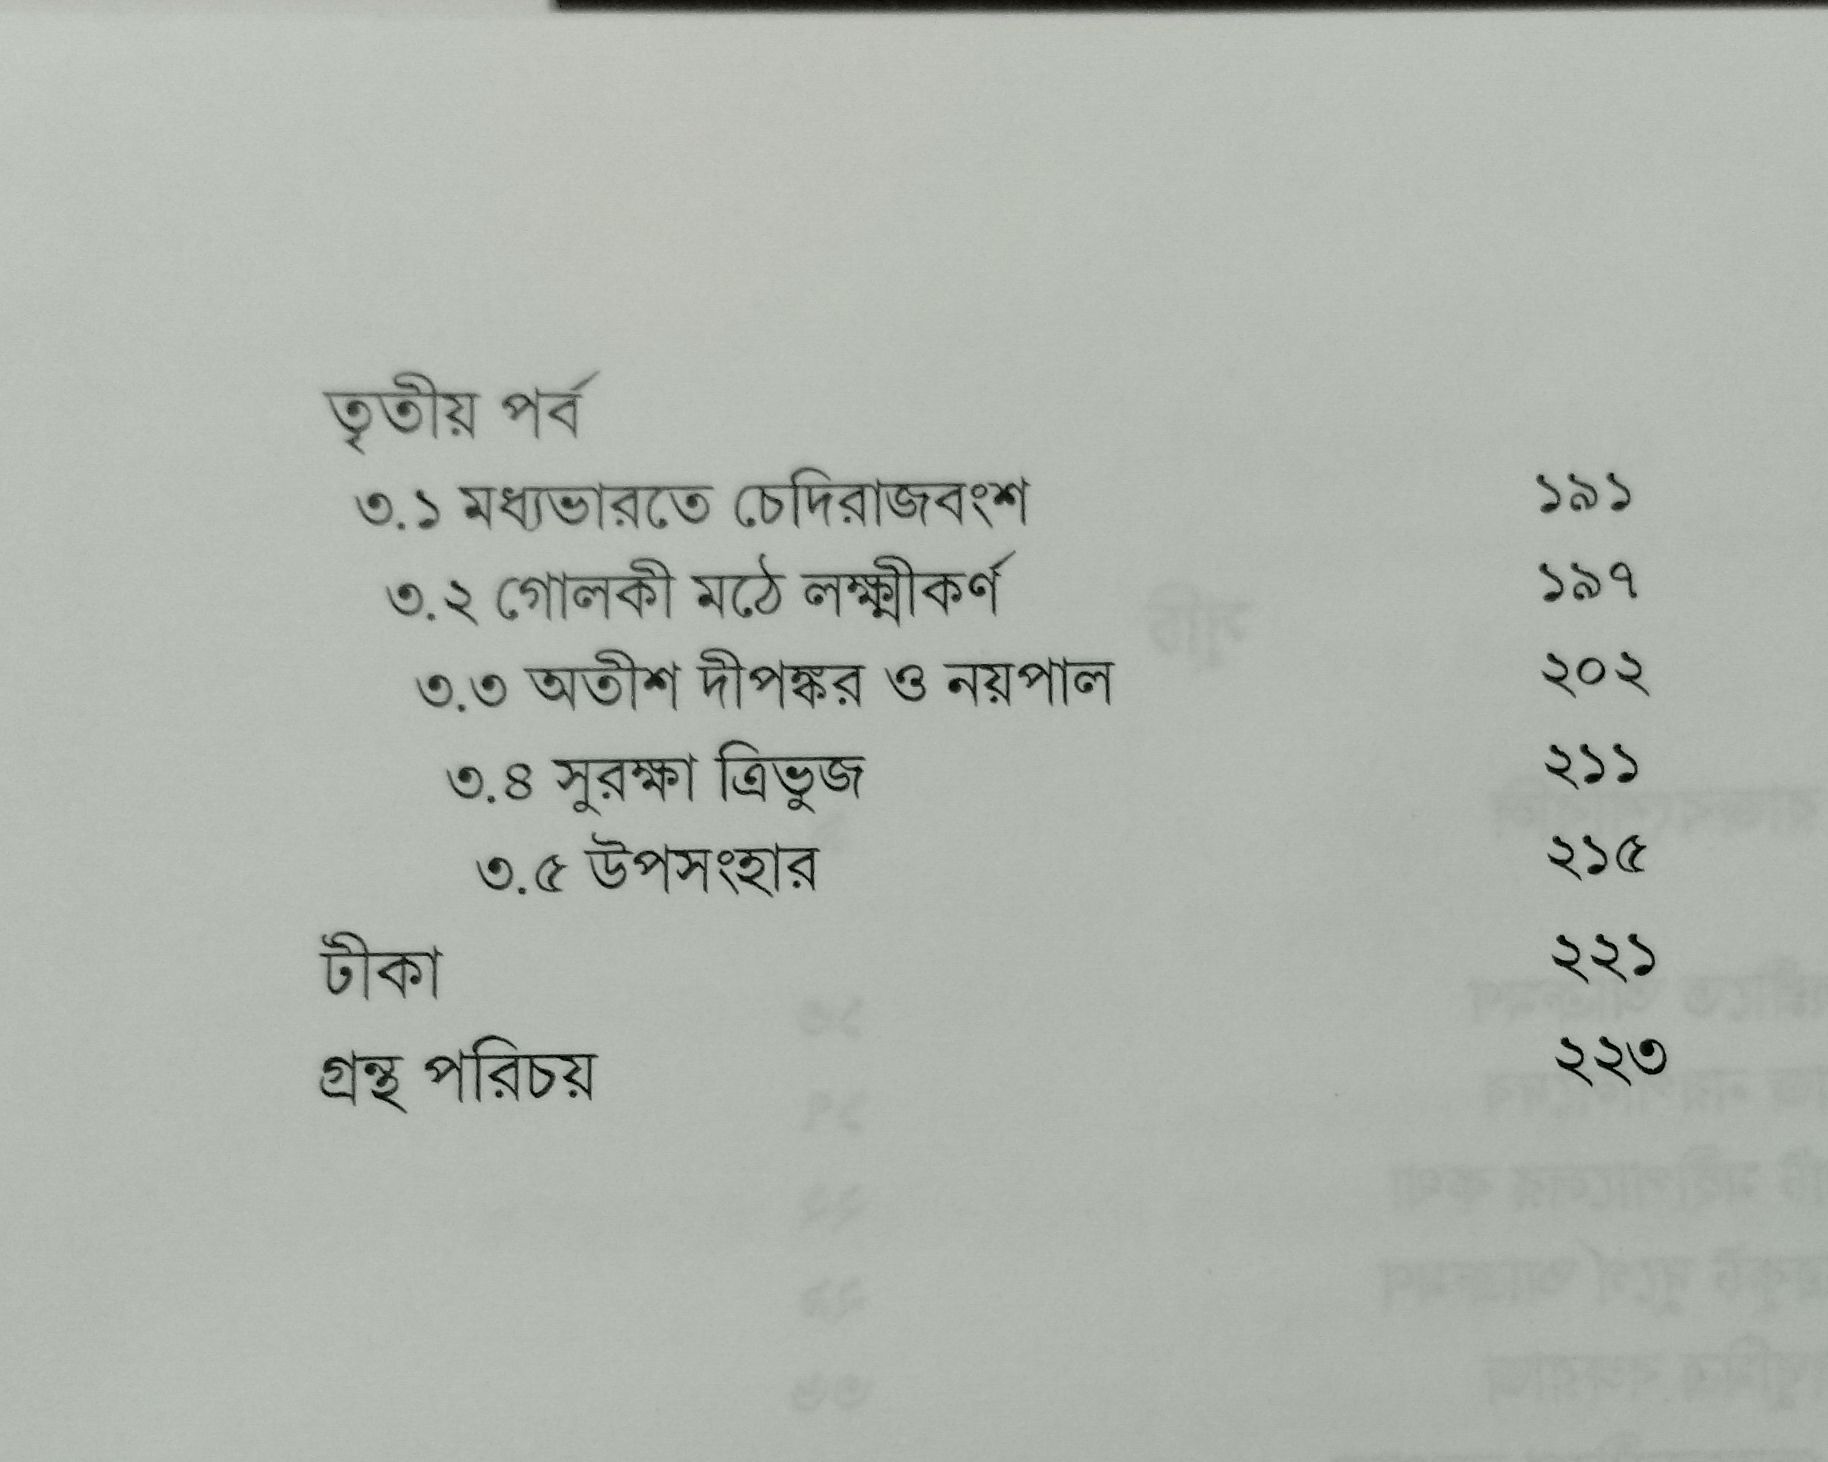 তৃতীয় পর্ব
৩.১ মধ্যভারতে চেদিরাজবংশ ১৯১
৩.২ গোলকী মঠে লক্ষ্মীকর্ণ ১৯৭
৩.৩ অতীশ দীপঙ্কর ও নয়পাল ২০২
৩.৪ সুরক্ষা ত্রিভুজ ২১১
৩.৫ উপসংহার ২১৫
টীকা ২২১
গ্রন্থ পরিচয় ২২৩